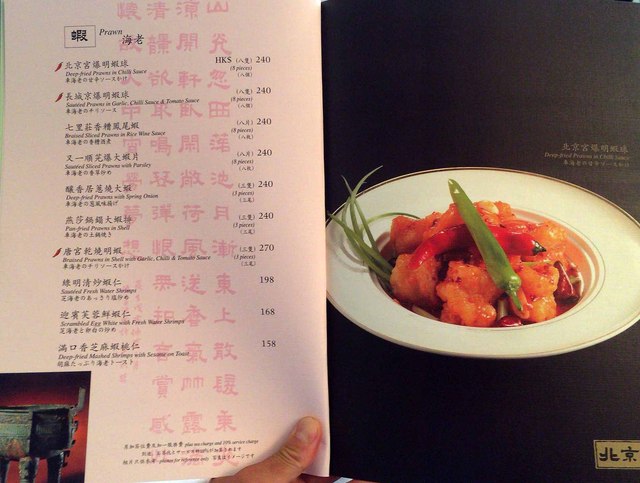 蝦 Prawn
海老
北京宮爆明蝦球 HK$ (八隻) 240
Deep-fried Prawns in Chilli Sauce (8 pieces)
車海老の甘辛ソースかけ (八個)
長城京爆明蝦球 (八隻) 240
Sautéed Prawns in Garlic, Chilli & Tomato Sauce (8 pieces)
車海老のチリソース (八個)
七里莊香糟鳳尾蝦 (八片) 240
Braised Sliced Prawns in Rice Wine Sauce (8 pieces)
車海老の香糟酒煮 (八枚)
又一順芫爆大蝦片 (八片) 240
Sautéed Sliced Prawns with Parsley (8 pieces)
車海老の香草炒め (八枚)
釀香居蔥燒大蝦 (三隻) 240
Deep-fried Prawns with Spring Onion (3 pieces)
車海老の葱風味揚げ (三尾)
燕莎鍋鎉大蝦排 (三隻) 240
Pan-fried Prawns in Shell (3 pieces)
車海老の土鍋焼き (三尾)
唐宮乾燒明蝦 (三隻) 270
Braised Prawns in Shell with Garlic, Chilli & Tomato Sauce (3 pieces)
車海老のチリソースかけ (三尾)
綠明清炒蝦仁 198
Sautéed Fresh Water Shrimps
芝海老のあっさり塩炒め
迎賓芙蓉鮮蝦仁 168
Scrambled Egg White with Fresh Water Shrimps
芝海老と卵白の炒め
滿口香芝麻蝦桃仁 158
Deep-fried Mashed Shrimps with Sesame on Toast
胡麻たっぷり海老トースト
另加茶位費及加一服務費 plus tea charge and 10% service charge
別途、お茶代とサービス料10%が加算されます
相片只供參考 photos for reference only 写真はイメージです
北京宮爆明蝦球
Deep-fried Prawns in Chilli Sauce
車海老の甘辛ソースかけ
北京